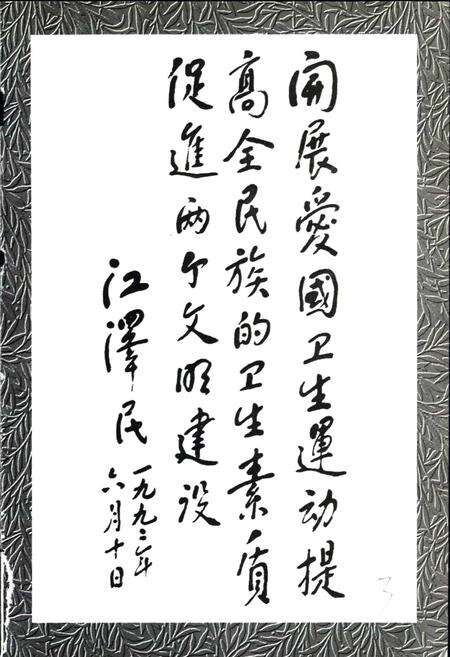 開展愛國卫生運动提
高全民族的卫生素质
促進两个文明建设
江澤民
一九九二年
六月十日